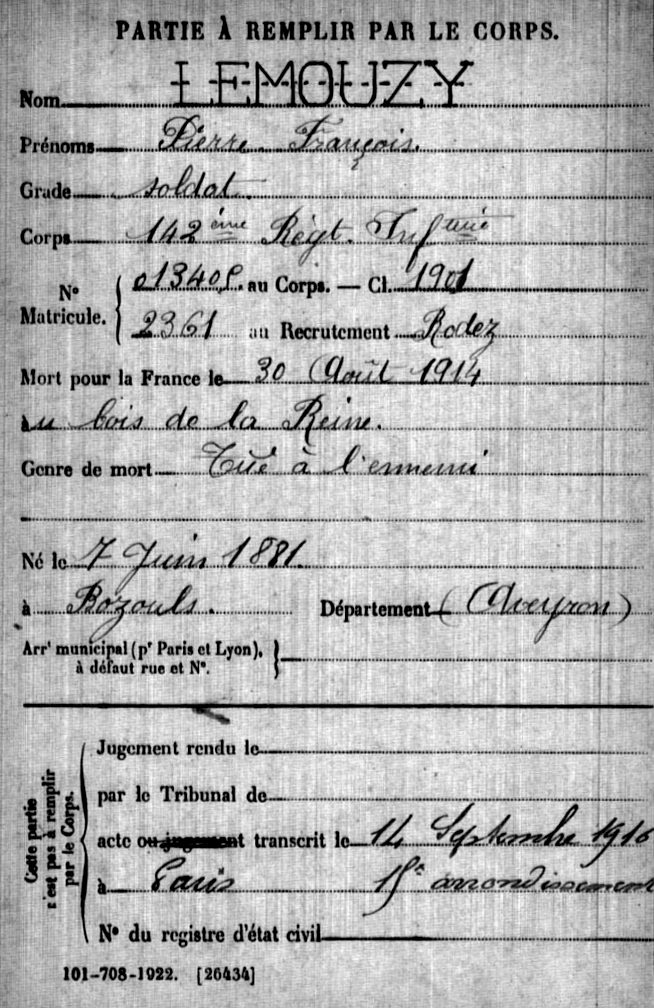 PARTIE À REMPLIR PAR LE CORPS.
Nom LEMOUZY
Prénoms Pierre François.
Grade soldat
Corps 142ème Régt. Infterie
N° Matricule. 01340 au Corps. — Cl. 1901
2361 au Recrutement Rodez
Mort pour la France le 30 Août 1914
au bois de la Reine.
Genre de mort Tué à l'ennemi
Né le 7 Juin 1881.
à Bozouls. Département (Aveyron)
Arrt municipal (pr Paris et Lyon),
à défaut rue et N°.
Cette partie n'est pas à remplir par le Corps.
Jugement rendu le
par le Tribunal de
acte ou jugement transcrit le 14 Septembre 1916
à Paris 15e arrondissement
N° du registre d'état civil
101-708-1922. [26434]